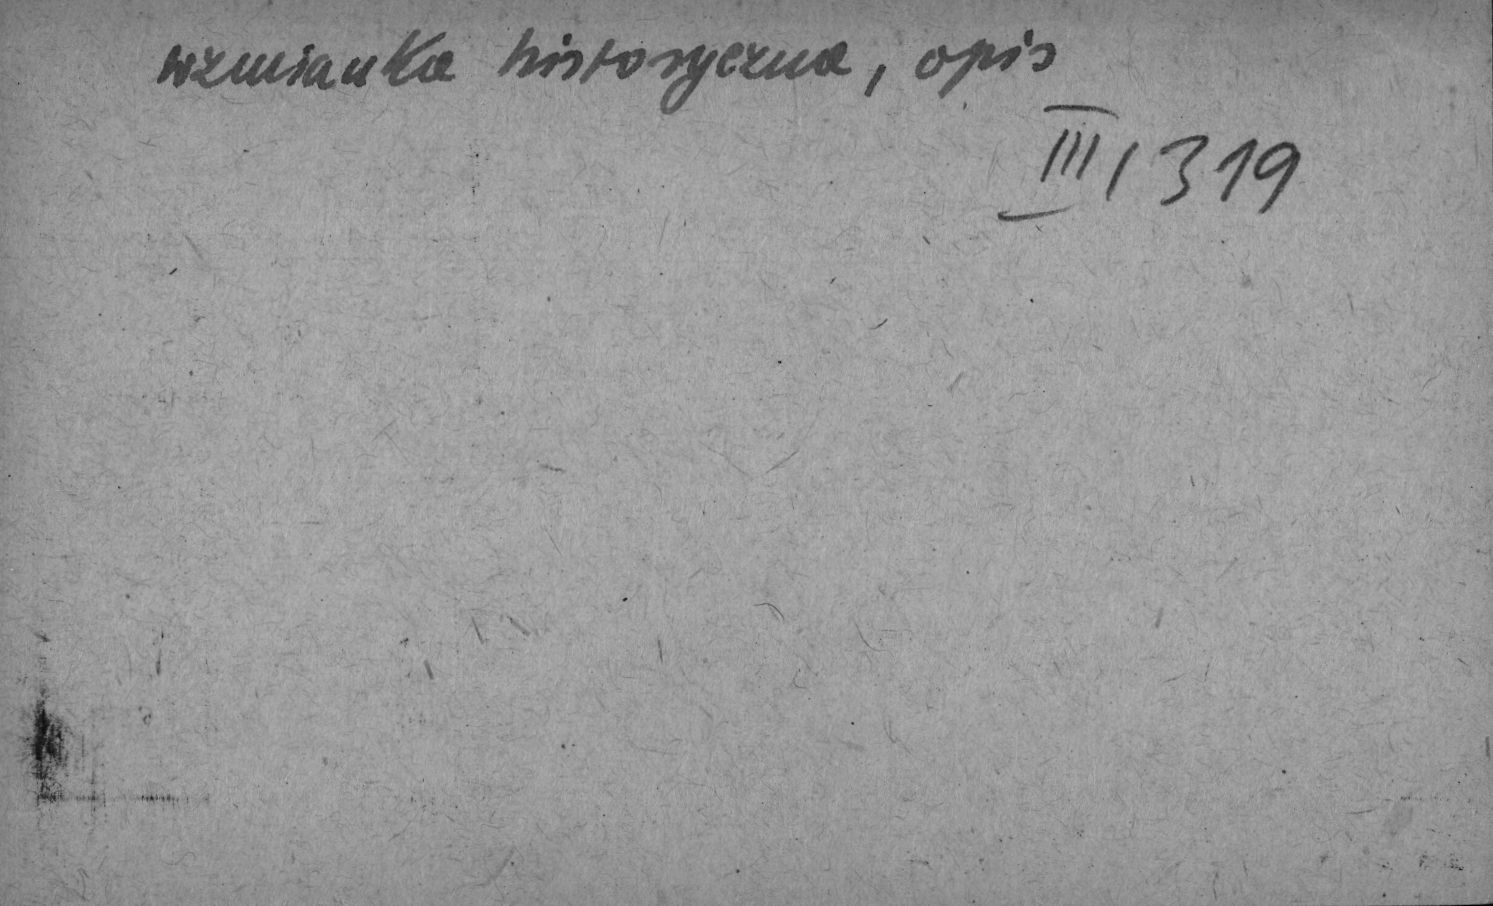 wzmianka historyczna, opis
III, 319